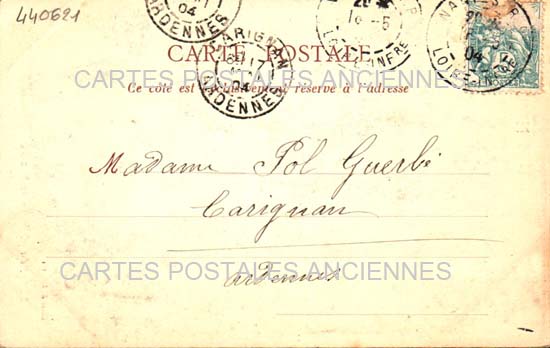 440621
04
ARDENNES
CARIGNAN
6E 17
04
ARDENNES
16 -5
NANTES
04
LOIRE
CARTE POSTALE
CARTES POSTALES ANCIENNES
Ce côté est exclusivement réservé à l'adresse
Madame Pol Guerbé
Carignan
CARTES POSTALES ANCIENNES
Ardennes